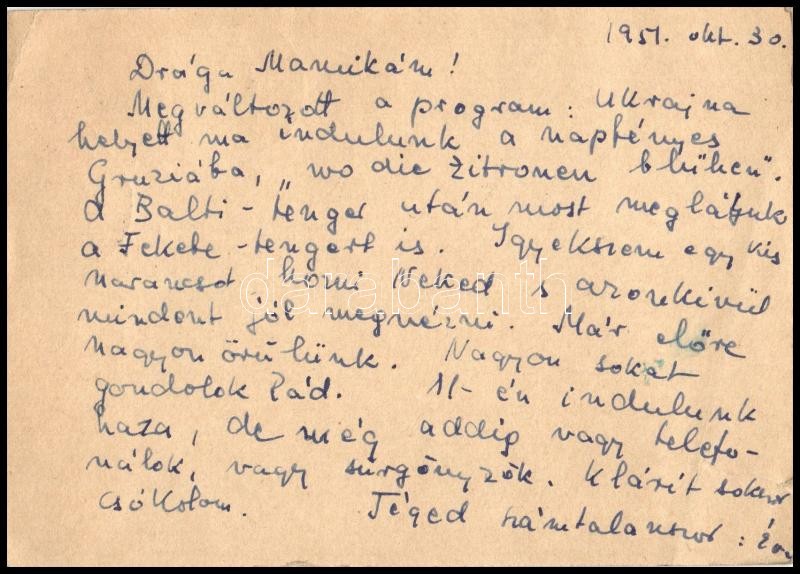 1951. okt. 30.
Drága Mamikám!
Megváltozott a program: Ukrajna
helyett ma indulunk a napfényes
Gruziába, „wo die Zitronen blühen".
A Balti-tenger után most meglátjuk
a Fekete-tengert is. Igyekszem egy kis
narancsot hozni Neked s azonkivül
mindent jól megnézni. Már előre
nagyon örülünk. Nagyon sokat
gondolok Rád. 11-én indulunk
haza, de még addig vagy telefo-
nálok, vagy sürgönyzök. Klárit sokszor
csókolom. Téged számtalanszor:
darabanth